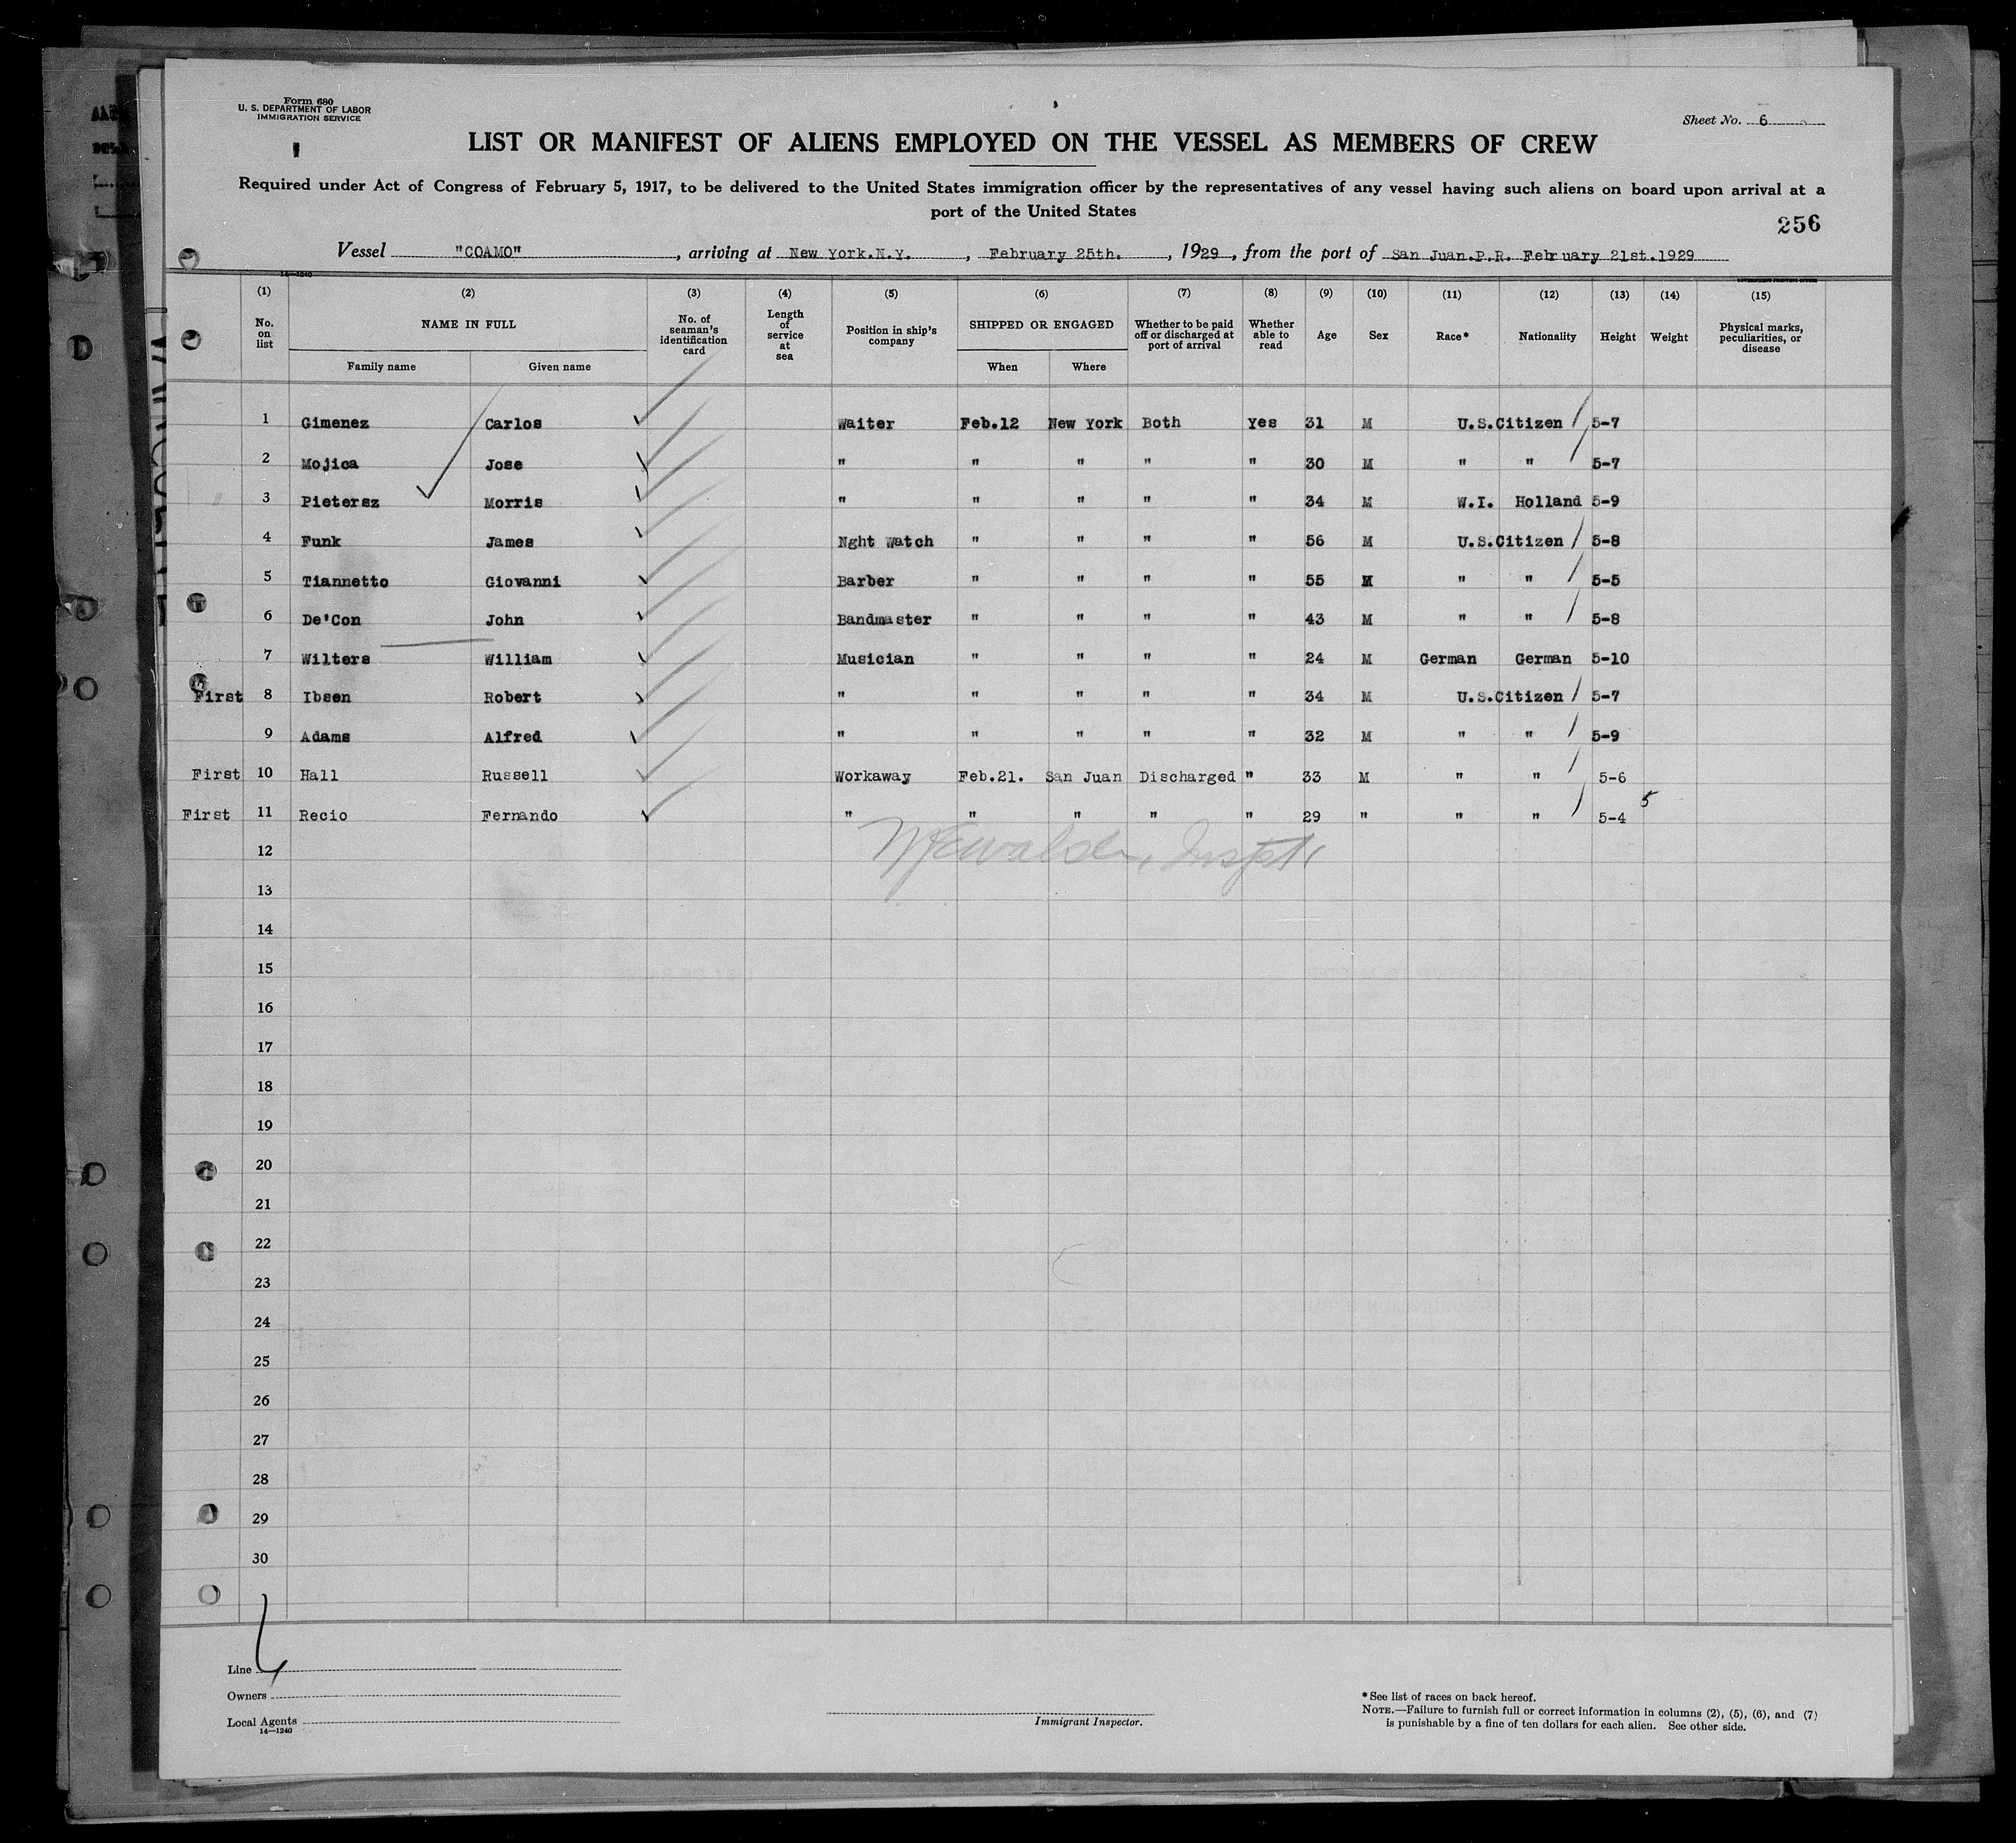 Form 680
U. S. DEPARTMENT OF LABOR
IMMIGRATION SERVICE
Sheet No. 6
LIST OR MANIFEST OF ALIENS EMPLOYED ON THE VESSEL AS MEMBERS OF CREW
Required under Act of Congress of February 5, 1917, to be delivered to the United States immigration officer by the representatives of any vessel having such aliens on board upon arrival at a
port of the United States
256
Vessel "COAMO", arriving at New York.N.Y., February 25th., 1929, from the port of San Juan.P.R. February 21st.1929
14-1240
(1) (2) (3) (4) (5) (6) (7) (8) (9) (10) (11) (12) (13) (14) (15)
No. on list NAME IN FULL No. of seaman's identification card Length of service at sea Position in ship's company SHIPPED OR ENGAGED Whether to be paid off or discharged at port of arrival Whether able to read Age Sex Race* Nationality Height Weight Physical marks, peculiarities, or disease
Family name Given name When Where
1 Gimenez Carlos Waiter Feb.12 New York Both Yes 31 M U.S.Citizen 5-7
2 Mojica Jose " " " " " 30 M " " 5-7
3 Pietersz Morris " " " " " 34 M W.I. Holland 5-9
4 Funk James Nght Watch " " " " 56 M U.S.Citizen 5-8
5 Tiannetto Giovanni Barber " " " " 55 M " " 5-5
6 De'Con John Bandmaster " " " " 43 M " " 5-8
7 Wilters William Musician " " " " 24 M German German 5-10
First 8 Ibsen Robert " " " " " 34 M U.S.Citizen 5-7
9 Adams Alfred " " " " " 32 M " " 5-9
First 10 Hall Russell Workaway Feb.21. San Juan Discharged " 33 M " " 5-6
First 11 Recio Fernando " " " " " 29 " " " 5-4 5
12
13
14
15
16
17
18
19
20
21
22
23
24
25
26
27
28
29
30
Line
Owners
Local Agents
14—1240
Immigrant Inspector.
*See list of races on back hereof.
NOTE.—Failure to furnish full or correct information in columns (2), (5), (6), and (7)
is punishable by a fine of ten dollars for each alien. See other side.